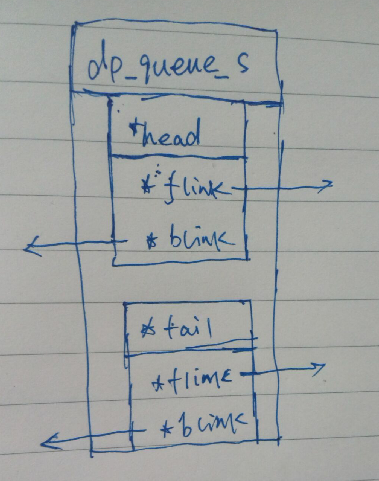 dp_queue_s
*head
*flink
*blink
*tail
*flink
*blink